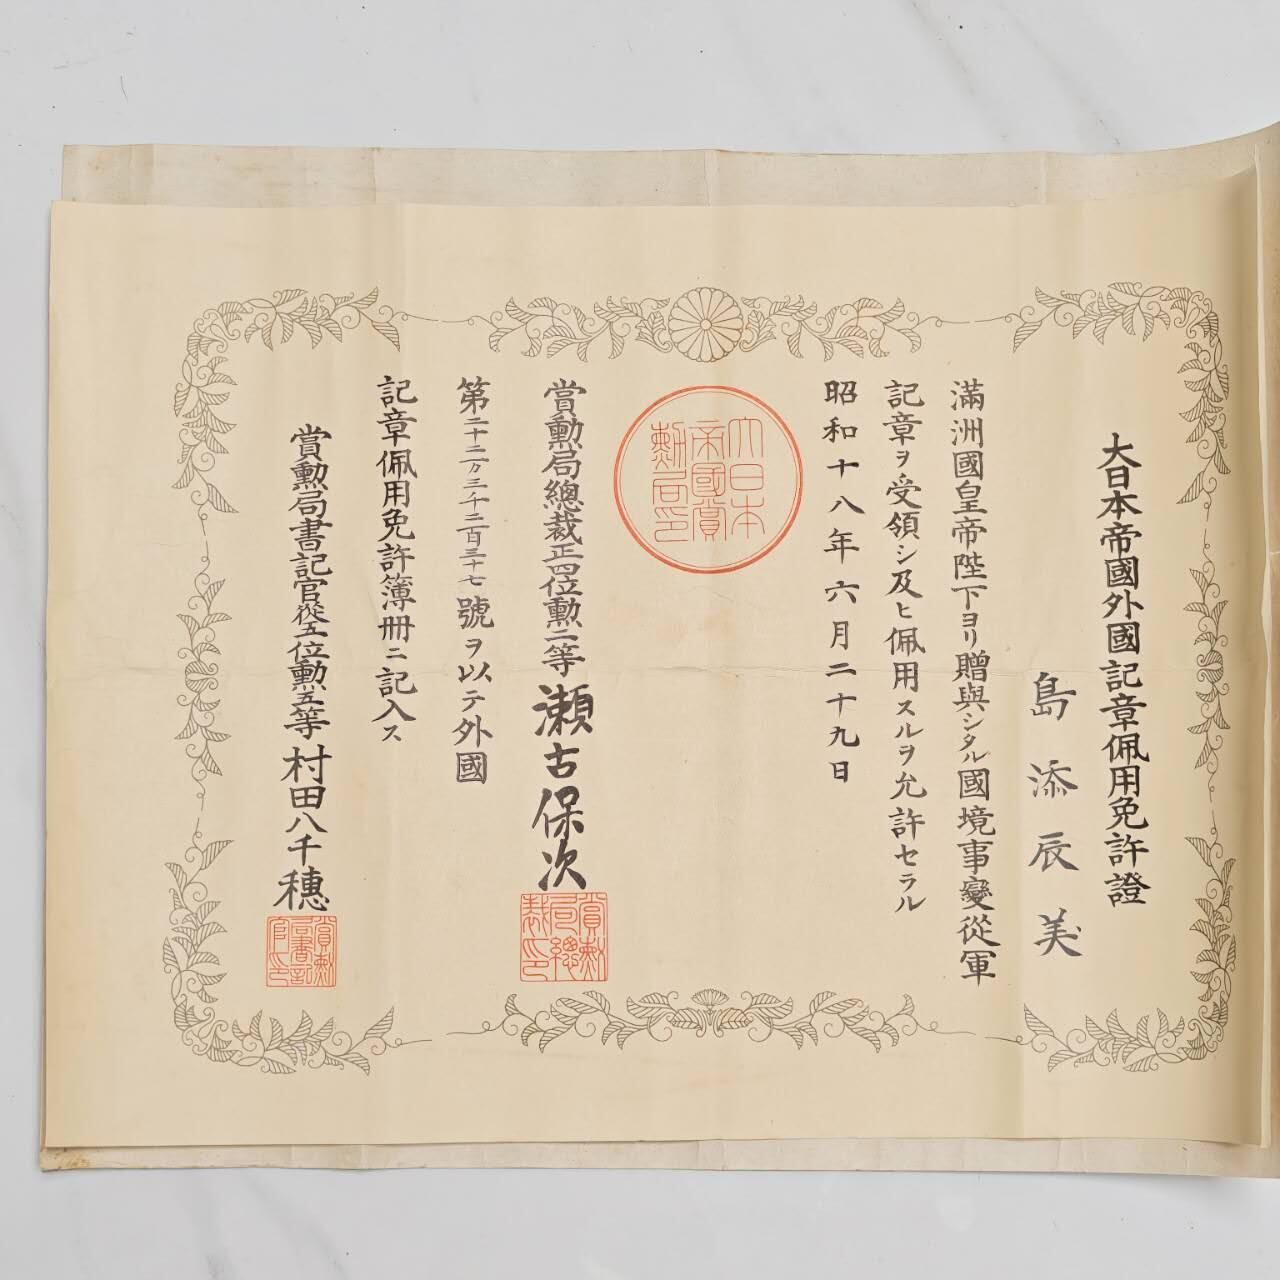 大日本帝國外國記章佩用免許證
島添辰美
滿洲國皇帝陛下ヨリ贈與シタル國境事變從軍
記章ヲ受領シ及ヒ佩用スルヲ允許セラル
昭和十八年六月二十九日
大日本
帝國賞
勳局印
賞勳局總裁正四位勳二等瀨古保次
賞勳
局總
裁印
第二十二万三千二百三十七號ヲ以テ外國
記章佩用免許簿册ニ記入ス
賞勳局書記官從五位勳五等村田八千穗
賞勳
局書記
官印